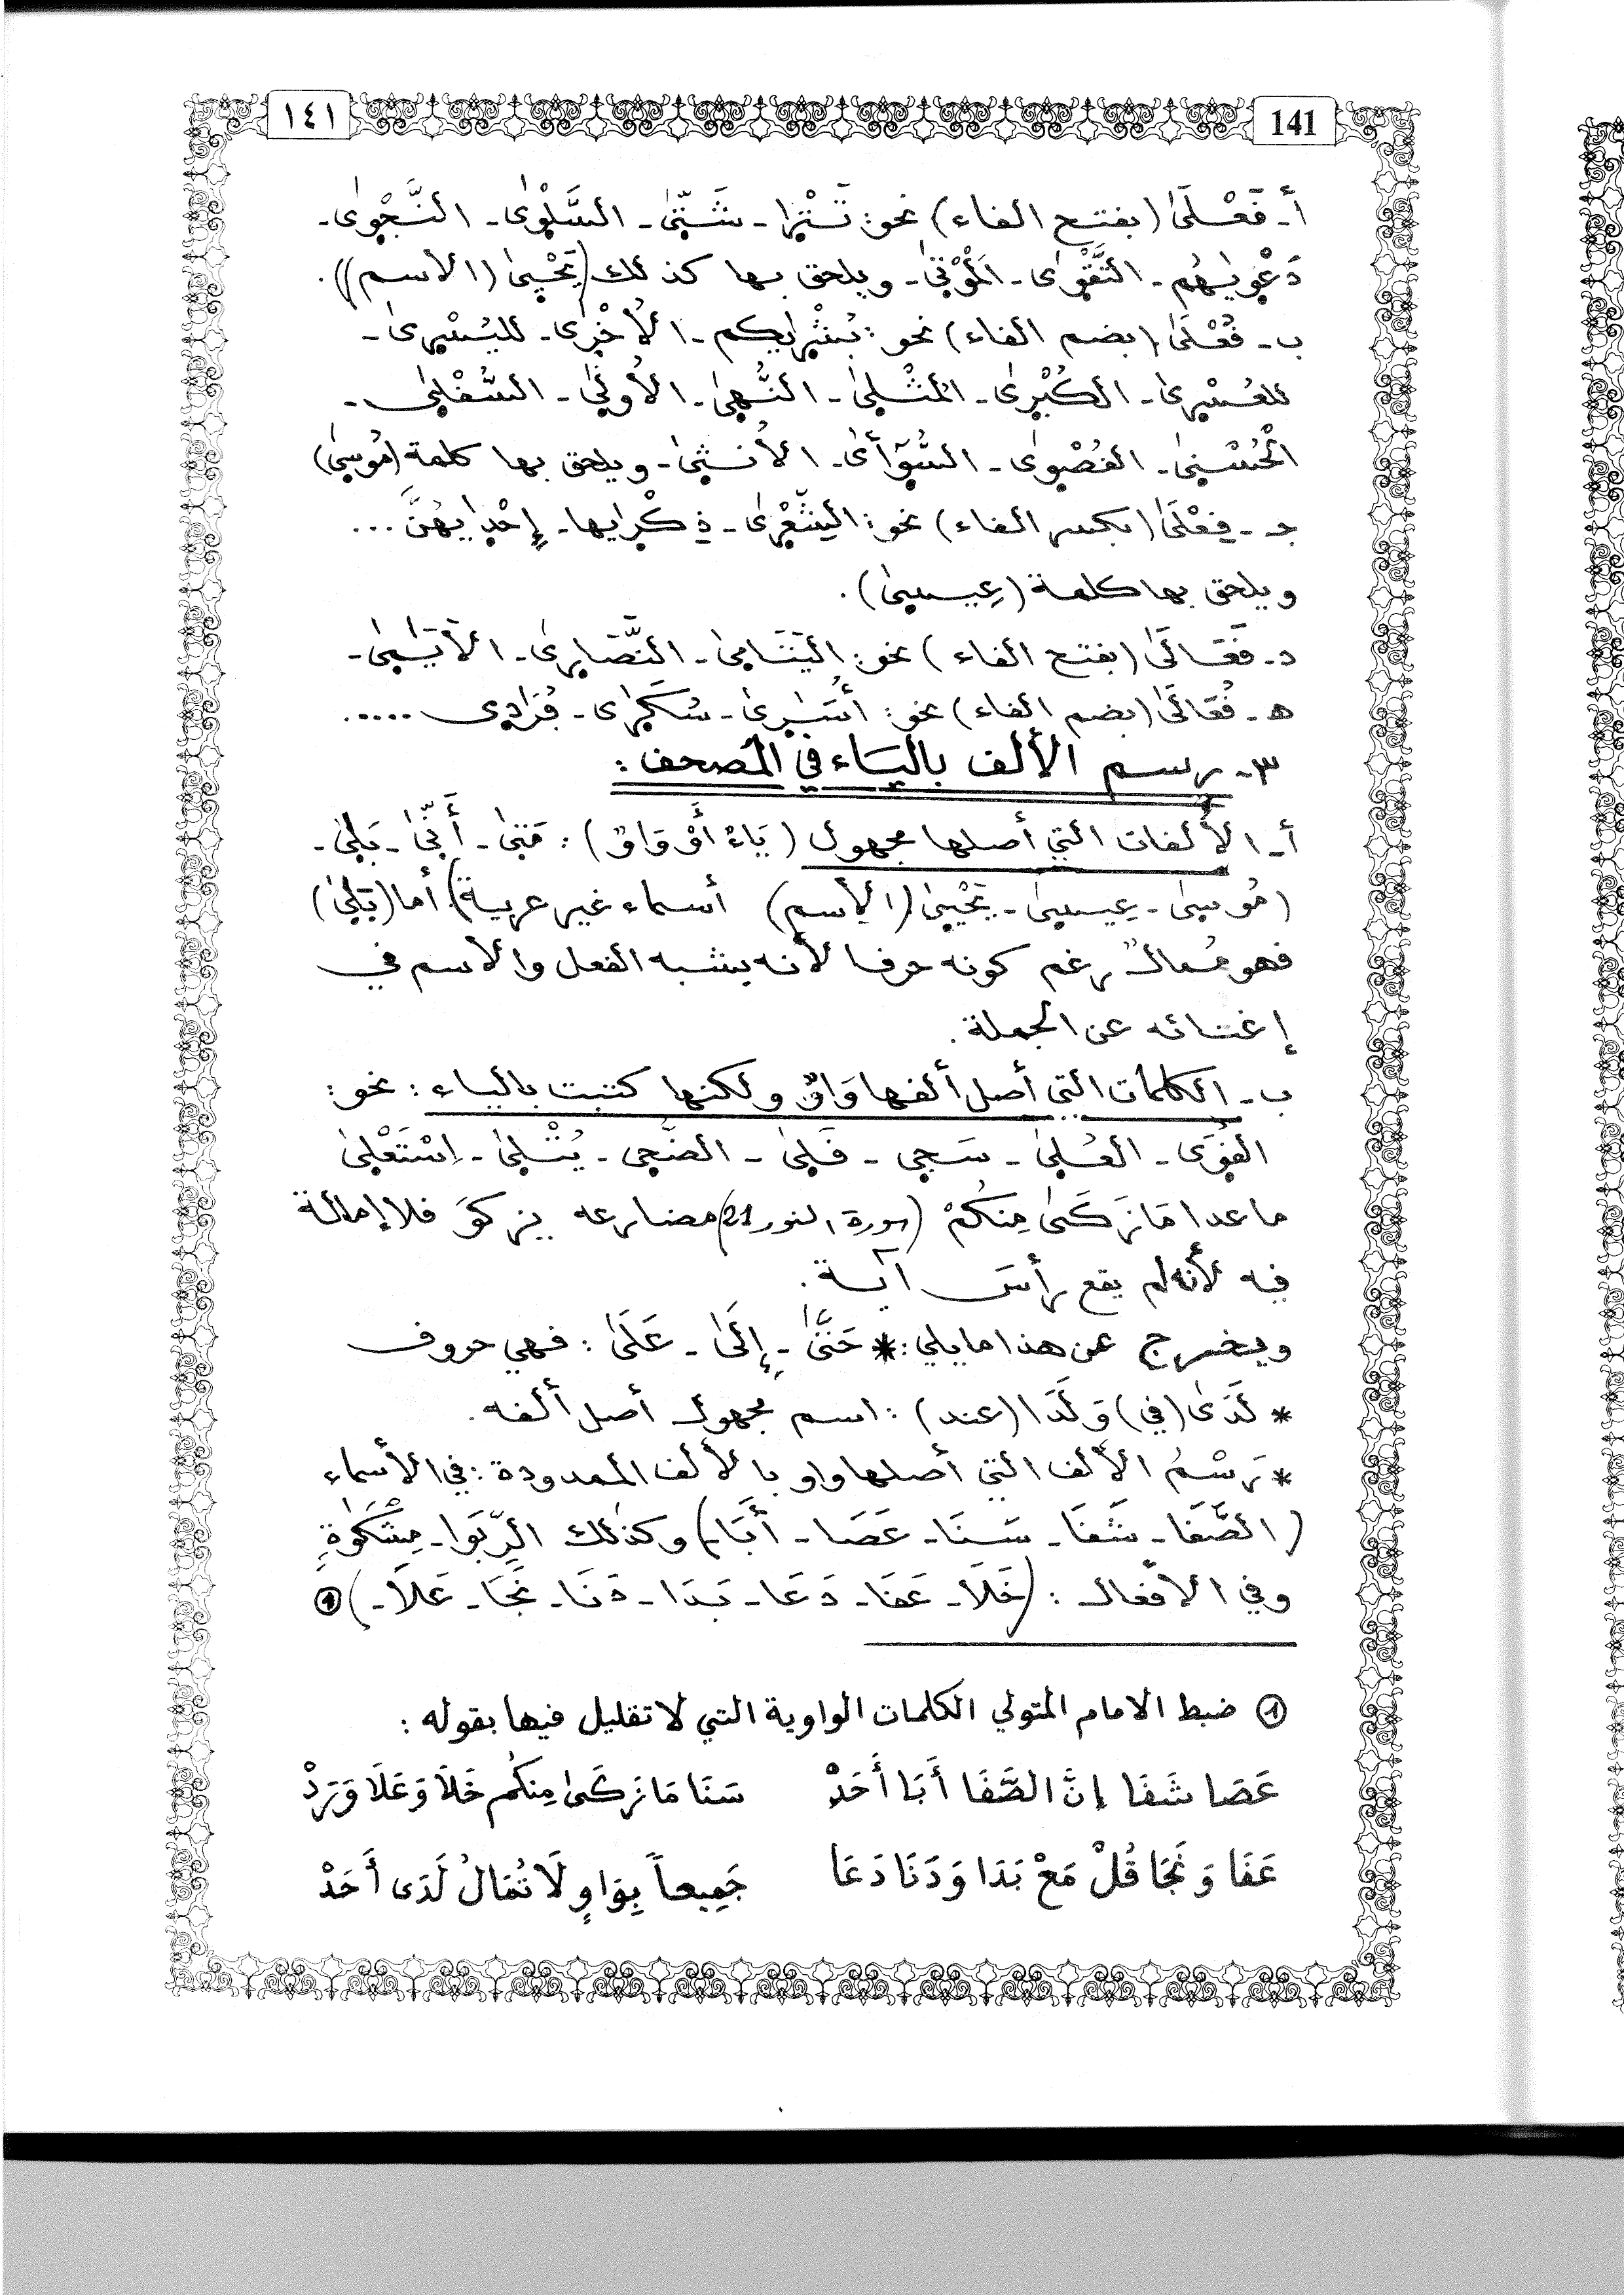 ١٤١ 141
أ- فَعْلَىٰ (بفتح الفاء) نحو: تَتْرَا - شَتَّىٰ - السَّلْوَىٰ - النَّجْوَىٰ -
دَعْوَىٰهُم - التَّقْوَىٰ - المَوْتَىٰ - ويلحق بها كذلك (يَحْيَىٰ (الاسم)).
ب- فُعْلَىٰ (بضم الفاء) نحو: بُشْرَىٰكم - الأُخْرَىٰ - لليُسْرَىٰ -
للعُسْرَىٰ - الكُبْرَىٰ - المُثْلَىٰ - النُّهَىٰ - الأُولَىٰ - السُّفْلَىٰ -
الْحُسْنَىٰ - القُصْوَىٰ - السُّوٓأَىٰ - الأُنثَىٰ - ويلحق بها كلمة (مُوسَىٰ)
جـ - فِعْلَىٰ (بكسر الفاء) نحو: الشِّعْرَىٰ - ذِكْرَىٰها - إِحْدَىٰهُنَّ ...
ويلحق بها كلمة (عِيسَىٰ).
د- فَعَالَىٰ (بفتح الفاء) نحو: اليَتَامَىٰ - النَّصَارَىٰ - الأَيَٰمَىٰ -
هـ - فُعَالَىٰ (بضم الفاء) نحو: أُسَٰرَىٰ - سُكَٰرَىٰ - فُرَادَى .....
٣- رسم الألف بالياء في المصحف:
أ- الألفات التي أصلها مجهول (يَاءٌ أَوْ وَاوٌ): مَتَىٰ - أَنَّىٰ - بَلَىٰ -
(مُوسَىٰ - عِيسَىٰ - يَحْيَىٰ (الإسم) أسماء غير عربية). أما (بَلَىٰ)
فهو مُمالٌ رغم كونه حرفا لأنه يشبه الفعل والاسم في
إغنائه عن الجملة.
ب- الكلمات التي أصل ألفها وَاوٌ ولكنها كتبت بالياء: نحو:
القُوَى - العُلَىٰ - سَجَى - قَلَىٰ - الضُّحَى - يُتْلَىٰ - اِسْتَعْلَىٰ
ما عدا مَا زَكَىٰ مِنكُمْ (سورة النور 21) مضارعه يزكوَ فلا إمالة
فيه لأنه لم يقع رأس آية.
ويخرج عن هذا ما يلي: * حَتَّىٰ - إِلَىٰ - عَلَىٰ : فهي حروف
* لَدَىٰ (في) وَلَدَا (عند) : اسم مجهول أصل ألفه.
* رَسْمُ الألف التي أصلها واو بالألف الممدودة: في الأسماء
(الصَّفَا - شَفَا - سَنَا - عَصَا - أَبَا -) وكذلك الرِّبَوا - مِشْكَوٰةٍ
وفي الأفعال : (خَلَا - عَفَا - دَعَا - بَدَا - دَنَا - نَجَا - عَلَا -) ①
① ضبط الامام المتولي الكلمات الواوية التي لا تقليل فيها بقوله :
عَصَا شَفَا إنَّ الصَّفَا أَبَا أَحَدْ سَنَا مَا زَكَىٰ مِنكُم خَلَا وَعَلَا وَرَدْ
عَفَا وَنَجَا قُلْ مَعْ بَدَا وَدَنَا دَعَا جَمِيعاً بِوَاوٍ لَا تُمَالُ لَدَى أَحَدْ